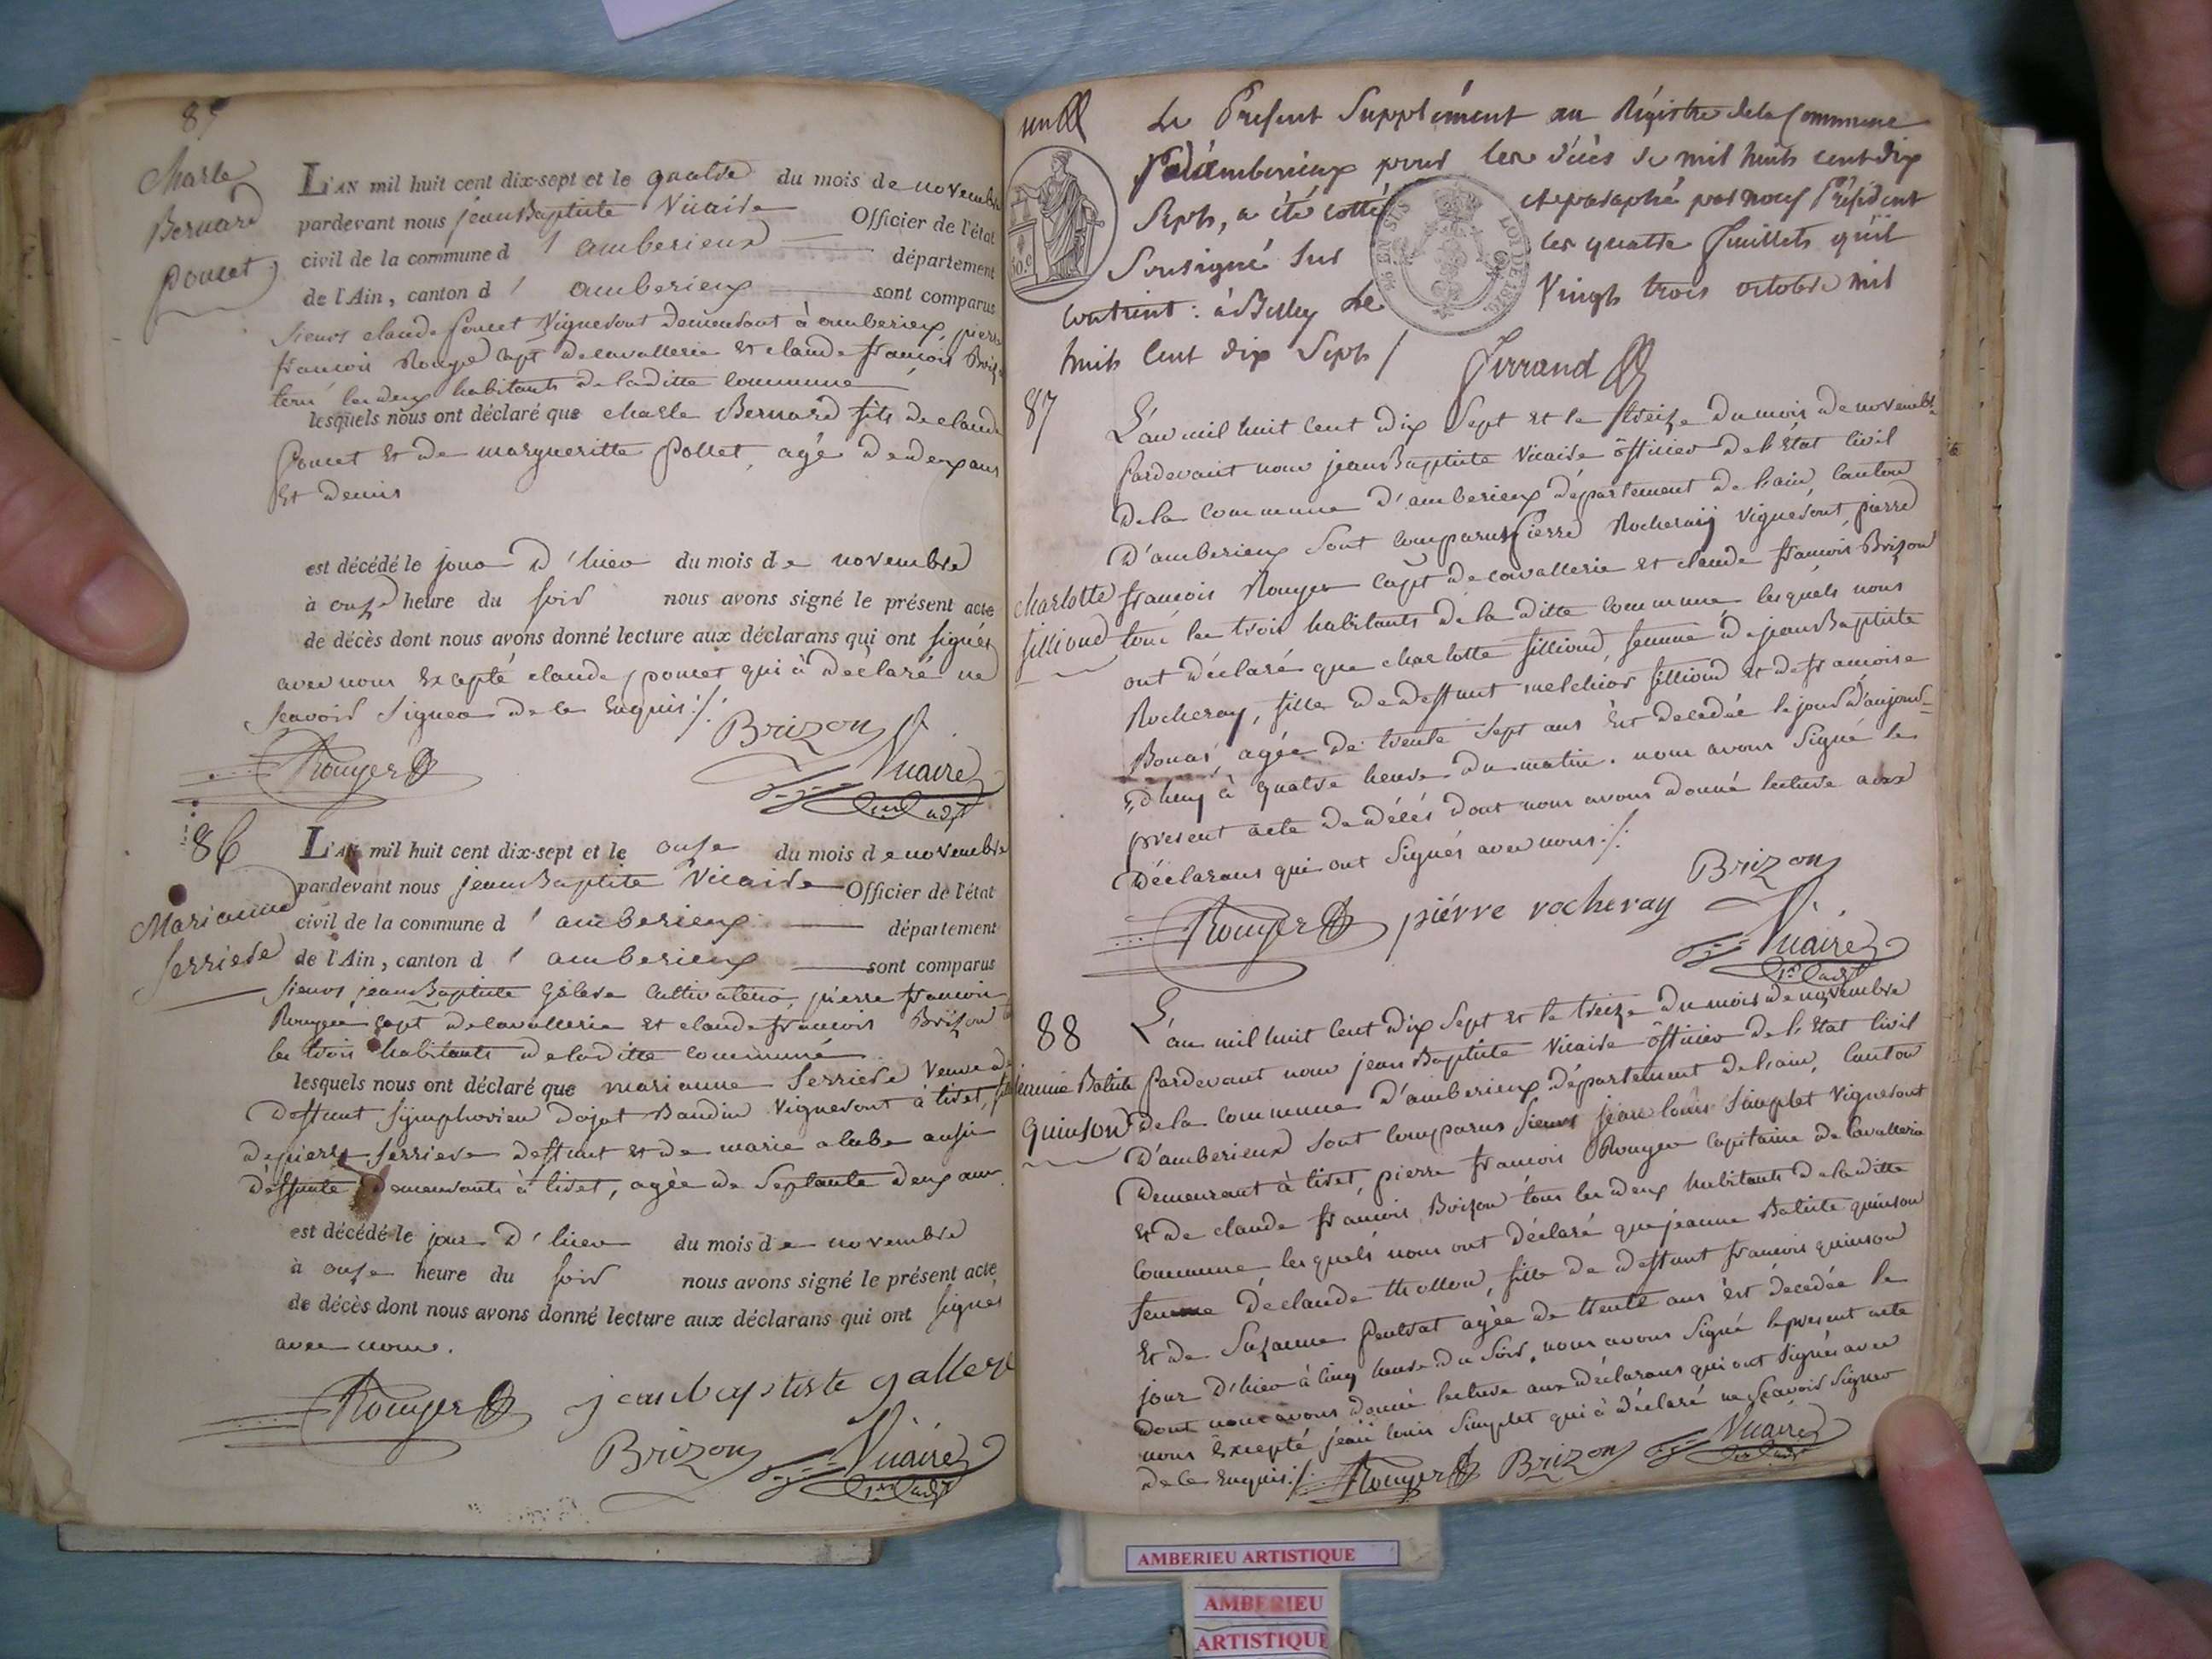 85
Charle
Bernard
poncet
L'AN mil huit cent dix-sept et le quatre du mois de novembre
pardevant nous jean Baptiste Vicaire Officier de l'état
civil de la commune d'amberieux département
de l'Ain, canton d'amberieux sont comparus
sieurs claude poncet Vigneront demeurant à amberieux, pierre
francois Rouyer capt de cavallerie et claude francois Brizon
les deux habitants de laditte commune
lesquels nous ont déclaré que charle Bernard fils de claude
Poncet et de margueritte Pollet, agé de deux ans
et demis
est décédé le jour d'hier du mois de novembre
à onze heure du soir nous avons signé le présent acte
de décès dont nous avons donné lecture aux déclarans qui ont signés
avec nous Excepté claude poncet qui à declaré ne
scavoir signer de ce Enquis ./.
Brizon
Rouyer
Vicaire
86
Marianne
serriere
L'AN mil huit cent dix-sept et le onze du mois de novembre
pardevant nous jean Baptiste Vicaire Officier de l'état
civil de la commune d'amberieux département
de l'Ain, canton d'amberieux sont comparus
sieurs jean Baptiste Galere cultivateur, pierre francois
Rouyer capt de cavallerie et claude francois Brizon
les trois habitants de laditte commune
lesquels nous ont déclaré que marianne Serriere Veuve de
deffunt symphorien Dojat Baudin Vigneront à tiret,
de pierre serriere deffunt et de marie alabe aussi
déffunte demeurants à tiret, agée de Septante deux ans
est décédé le jour d'hier du mois de novembre
à onze heure du soir nous avons signé le présent acte
de décès dont nous avons donné lecture aux déclarans qui ont signés
avec nous.
Rouyer jean baptiste gallere
Brizon Vicaire
un
Le Présent Supplément au Régistre de la Commune
d'amberieux pour les décès de mil huit cent dix
Sept, a été cotté et paraphé par nous Président
Sousigné sur les quatre feuillets qu'il
contient : à Belley le Vingt trois octobre mil
huit cent dix Sept /
Ferrand
50.c
EN SUS
LOI DE 1816
87
L'an mil huit cent dix Sept et le treize du mois de novembre
Pardevant nous jean Baptiste Vicaire officier de l'état civil
de la commune d'amberieux département de l'ain, canton
d'amberieux sont comparus Pierre Rocheray vigneront, pierre
charlotte
sillioud
francois Rouyer capt de cavallerie et claude francois Brizon
tous les trois habitants de la ditte commune, lesquels nous
ont déclaré que charlotte sillioud, femme de jean Baptiste
Rocheray, fille de deffunt melchior sillioud et de francoise
Bonas, agée de trente sept ans Est decedée le jour d'aujourd=
=d'huy à quatre heure du matin. nous avons signé le
present acte de décés dont nous avons donné lecture aux
Déclarans qui ont signés avec nous ./.
Brizon
Rouyer pièrre rocheray
Vicaire
88
L'an mil huit cent dix sept et le treize du mois de novembre
jeanne Batiste
quinson
Pardevant nous jean Baptiste Vicaire officier de l'Etat civil
de la commune d'amberieux département de l'ain, canton
d'amberieux sont comparus sieurs jean louis Simplet vigneront
demeurant à tiret, pierre francois Rouyer capitaine de cavallerie
et de claude francois Brizon tous les deux habitants de laditte
commune lesquels nous ont déclaré que jeanne Batiste quinson
femme de claude thollon, fille de deffunt francois quinson
Et de Suzanne agée de trente ans est decedée le
jour d'hier à cinq heure du soir, nous avons signé le present acte
dont nous avons donné lecture aux déclarans qui ont signés avec
nous Excepté jean louis simplet qui à déclaré ne scavoir signer
de ce Enquis ./. Rouyer Brizon Vicaire
AMBERIEU ARTISTIQUE
AMBERIEU
ARTISTIQUE